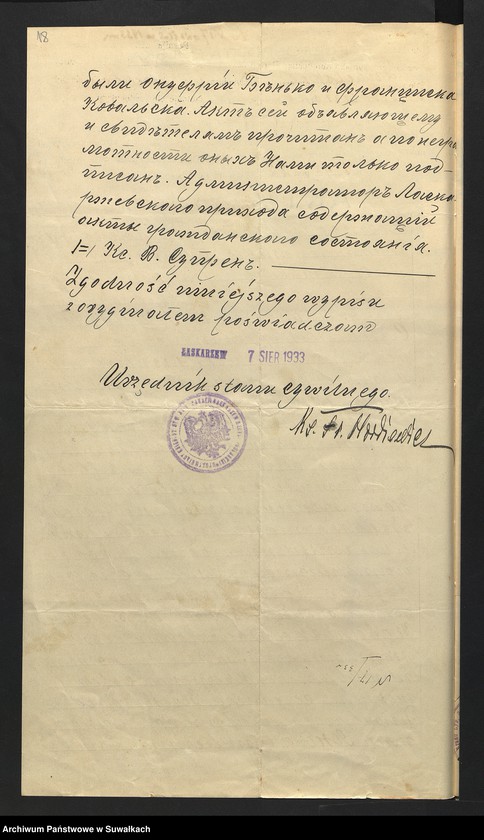 18
были Онуфрій Бѣнько и Франциска
Ковальска. Актъ сей объявляющему
и свидѣтелямъ прочитан а по негра
мотности оныхъ Нами только под-
писанъ. Администраторъ Ласка
ржевского прихода содержащій
акты гражданского состоянія.
/=/ Кс. В. Супренъ.
Zgodność niniejszego wypisu
z oryginałem poświadczam
ŁASKARZEW 7 SIER 1933
Urzędnik stanu cywilnego.
Ks. St.
Archiwum Państwowe w Suwałkach